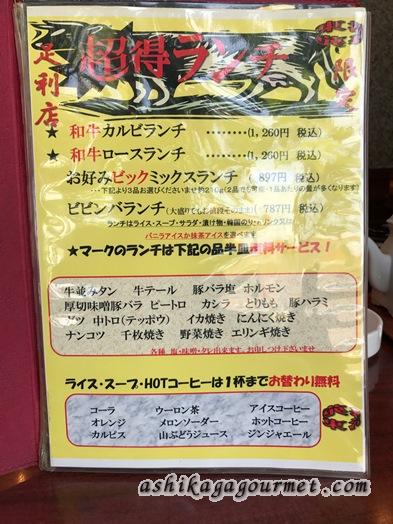 足利店
超得ランチ
限定
★ 和牛カルビランチ ‥‥‥‥(1,260円 税込)
★ 和牛ロースランチ ‥‥‥‥(1,260円 税込)
お好みビックミックスランチ (897円 税込)
‥‥下記より3品お選びくださいませ約210g(2品でも可能・1品あたりの量が多くなります)
ビビンバランチ(大盛りでもお値段そのまま)(787円 税込)
ランチはライス・スープ・サラダ・漬け物・韓国のり・ドリンク又は
バニラアイスか抹茶アイスを選べます
★マークのランチは下記の品半皿無料サービス!
牛並みタン 牛テール 豚バラ塩 ホルモン
厚切味噌豚バラ ピートロ カシラ とりもも 豚ハラミ
中トロ(テッポウ) イカ焼き にんにく焼き
ナンコツ 千枚焼き 野菜焼き エリンギ焼き
各種、塩・味噌・タレ出来ます。お申しつけ下さいませ
ライス・スープ・HOTコーヒーは1杯までお替わり無料
コーラ ウーロン茶 アイスコーヒー
オレンジ メロンソーダー ホットコーヒー
カルピス 山ぶどうジュース ジンジャエール
ashikagagourmet.com